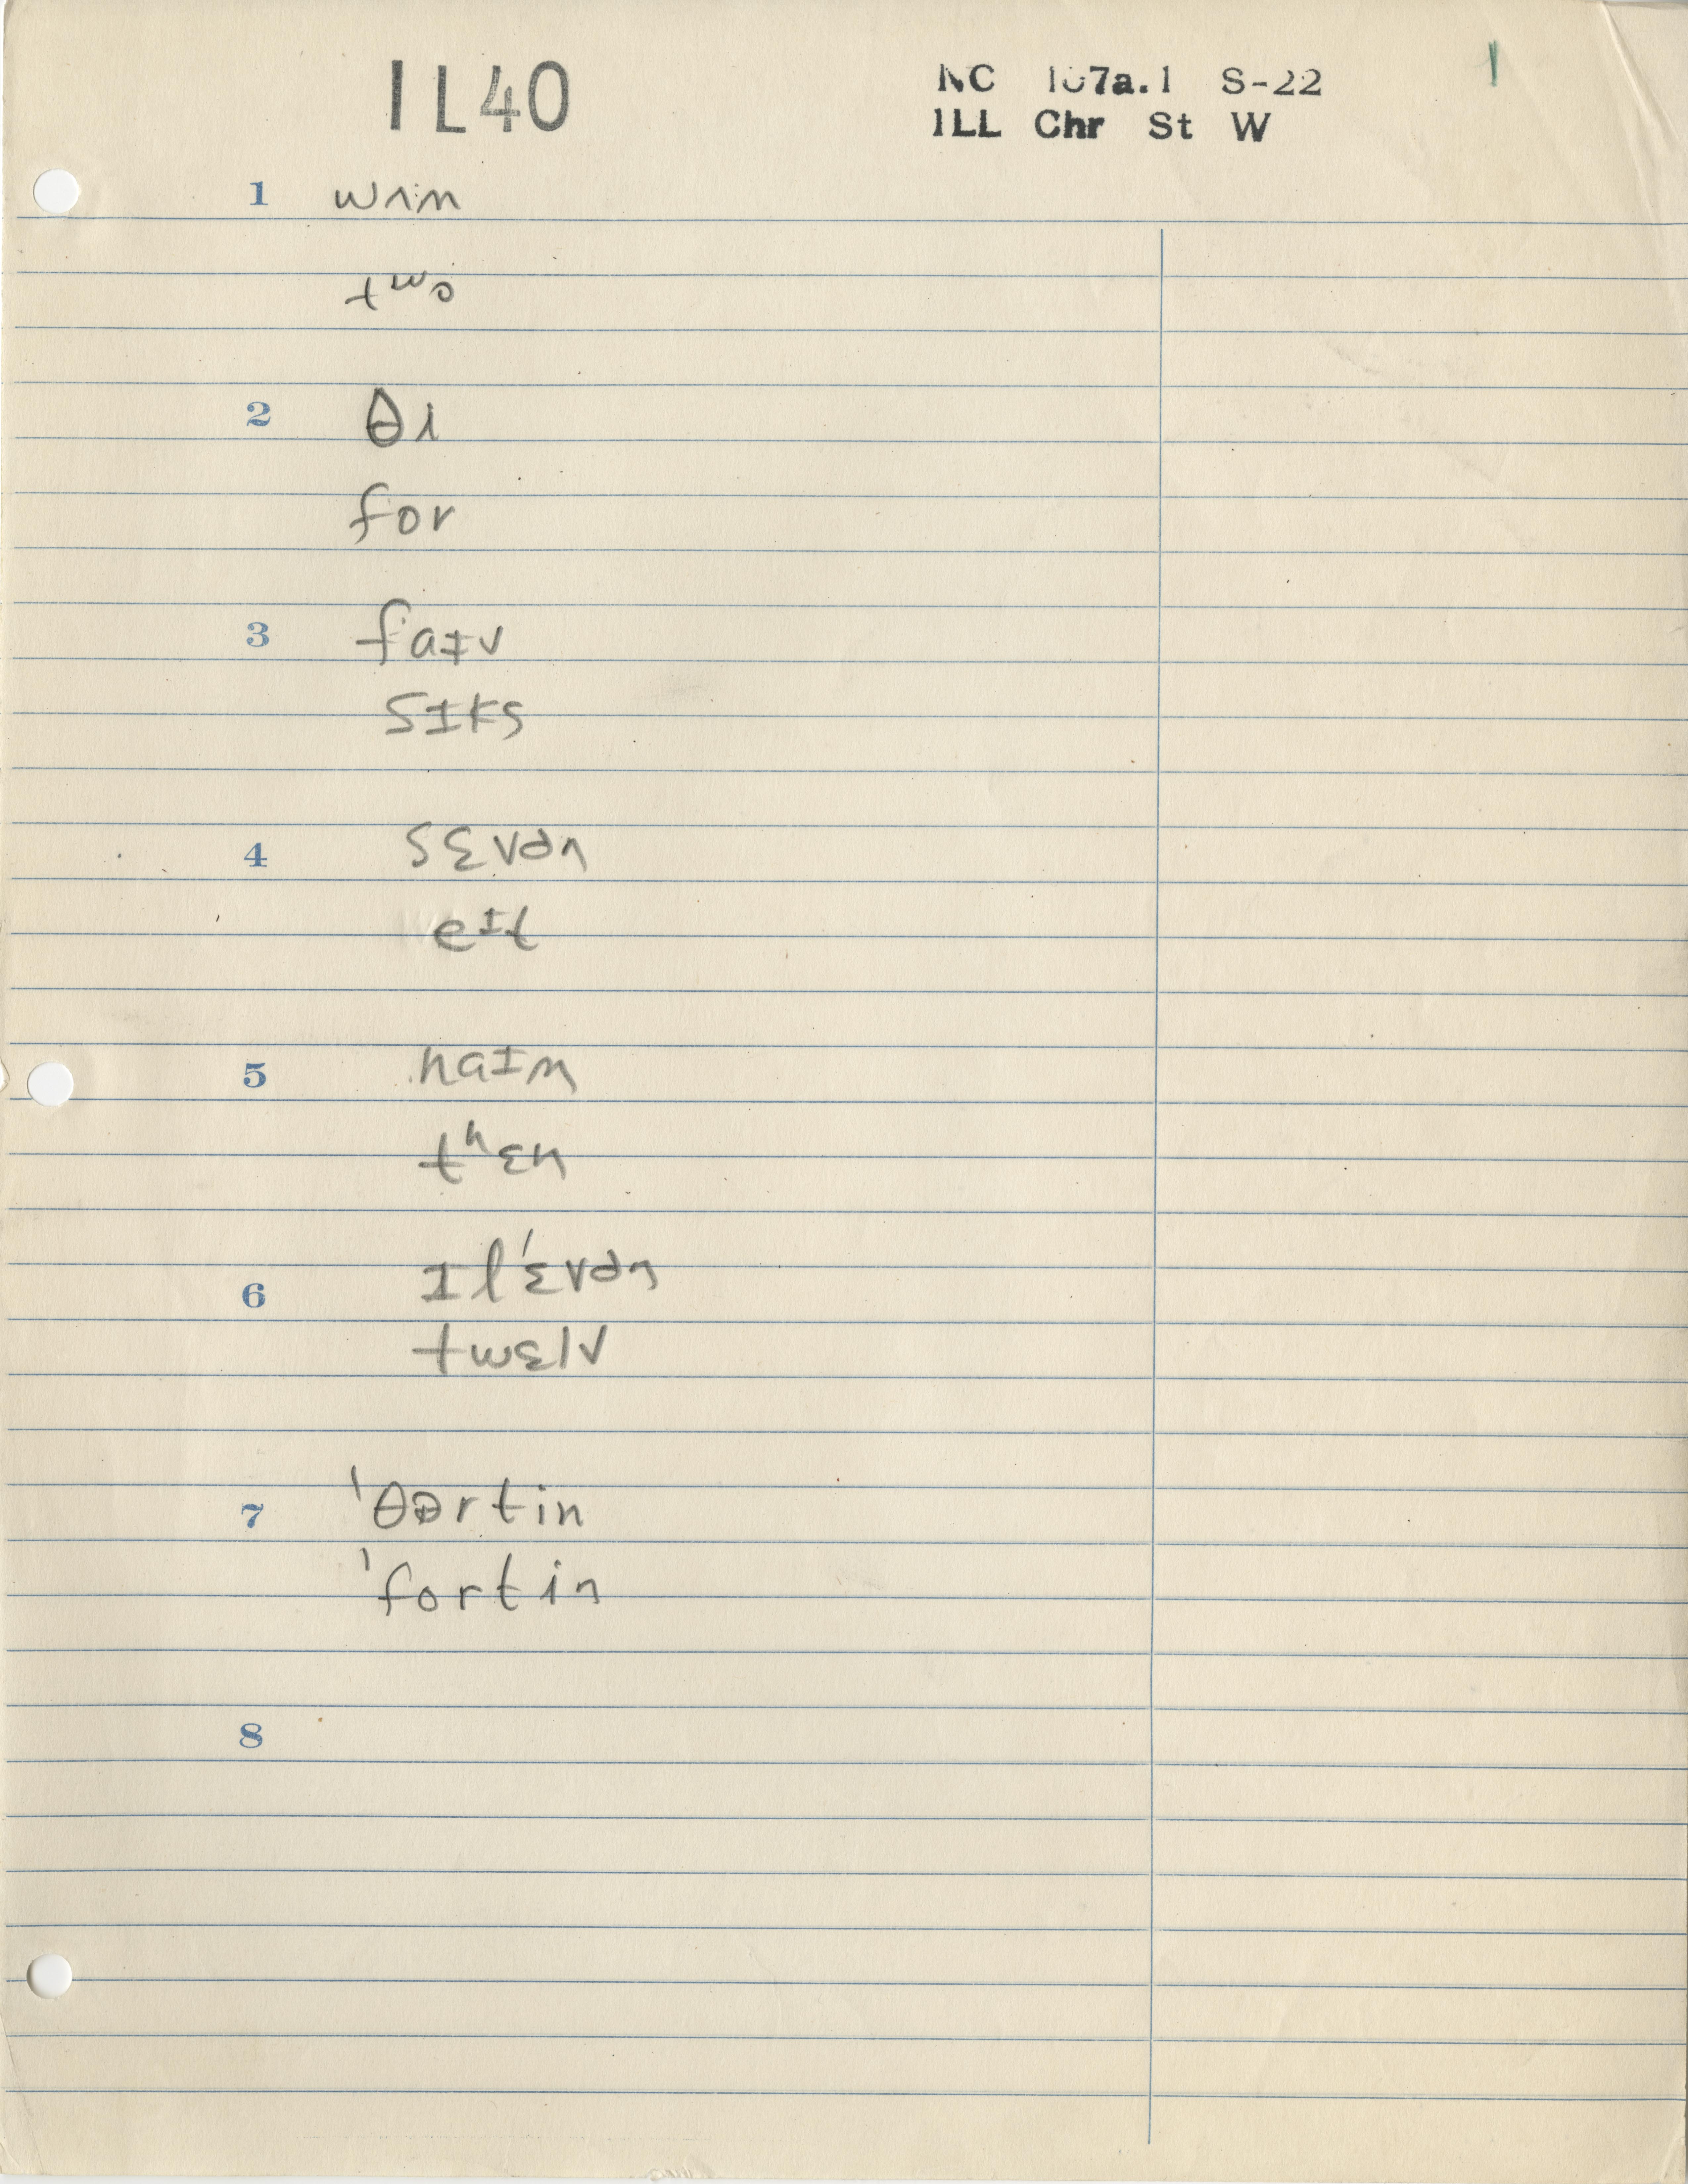 IL40
NC 107a.1 S-22 1
ILL Chr St W
1 wʌin
2 θi
for
3 faɪv
sɪks
4 sɛvən
eɪt
5 naɪn
tʰɛn
6 ɪlˈɛvən
twɛlv
7 ˈθərtin
ˈfortin
8